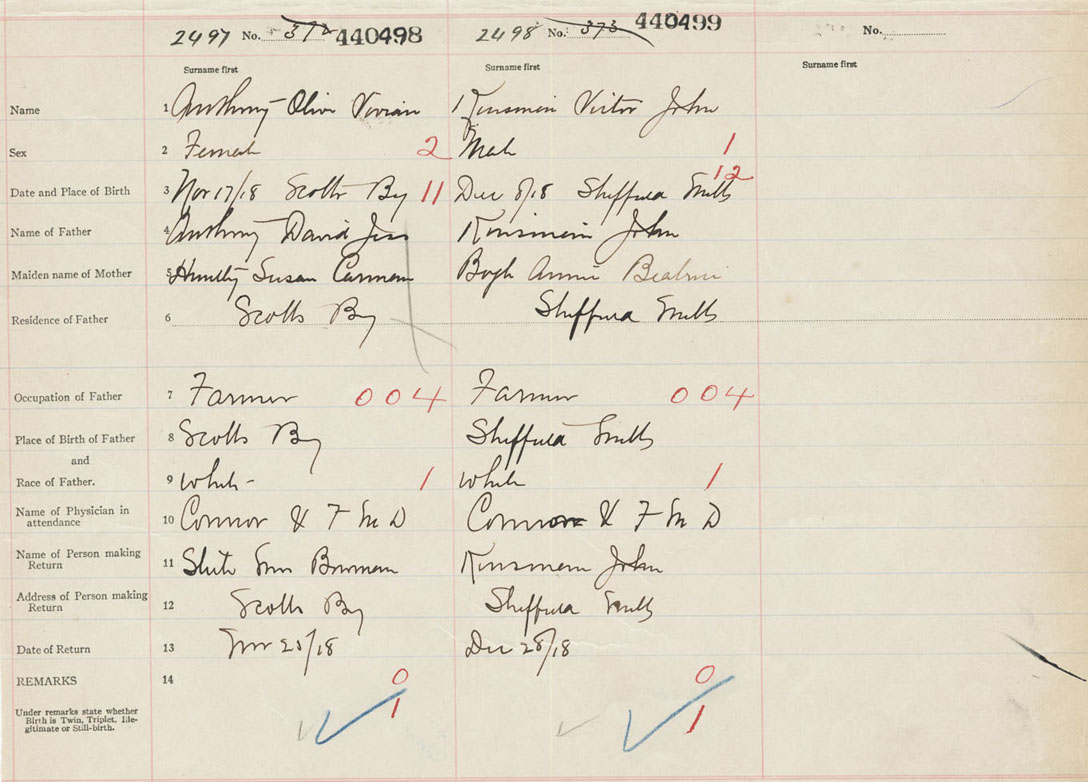 2497 No. 372 440498 2498 No. 373 440499 No.
Surname first Surname first Surname first
Name 1 Anthony Olive Vivian 1 Kinsmein Victor John
Sex 2 Female 2 Male 1
Date and Place of Birth 3 Nov 17/18 Scotts By 11 Dec 8/18 Sheffield Mills 12
Name of Father 4 Anthony David Kinsmein John
Maiden name of Mother 5 Huntly Susan Annie
Residence of Father 6 Scotts By Sheffield Mills
Occupation of Father 7 Farmer 004 Farmer 004
Place of Birth of Father 8 Scotts By Sheffield Mills
and
Race of Father. 9 White 1 White 1
Name of Physician in
attendance 10 Connor F M D Connor F M D
Name of Person making
Return 11 Bowman Kinsmein John
Address of Person making
Return 12 Scotts By Sheffield Mills
Date of Return 13 /18 Dec 28/18
REMARKS 14 0 0
Under remarks state whether
Birth is Twin, Triplet, Ille-
gitimate or Still-birth. 1 1